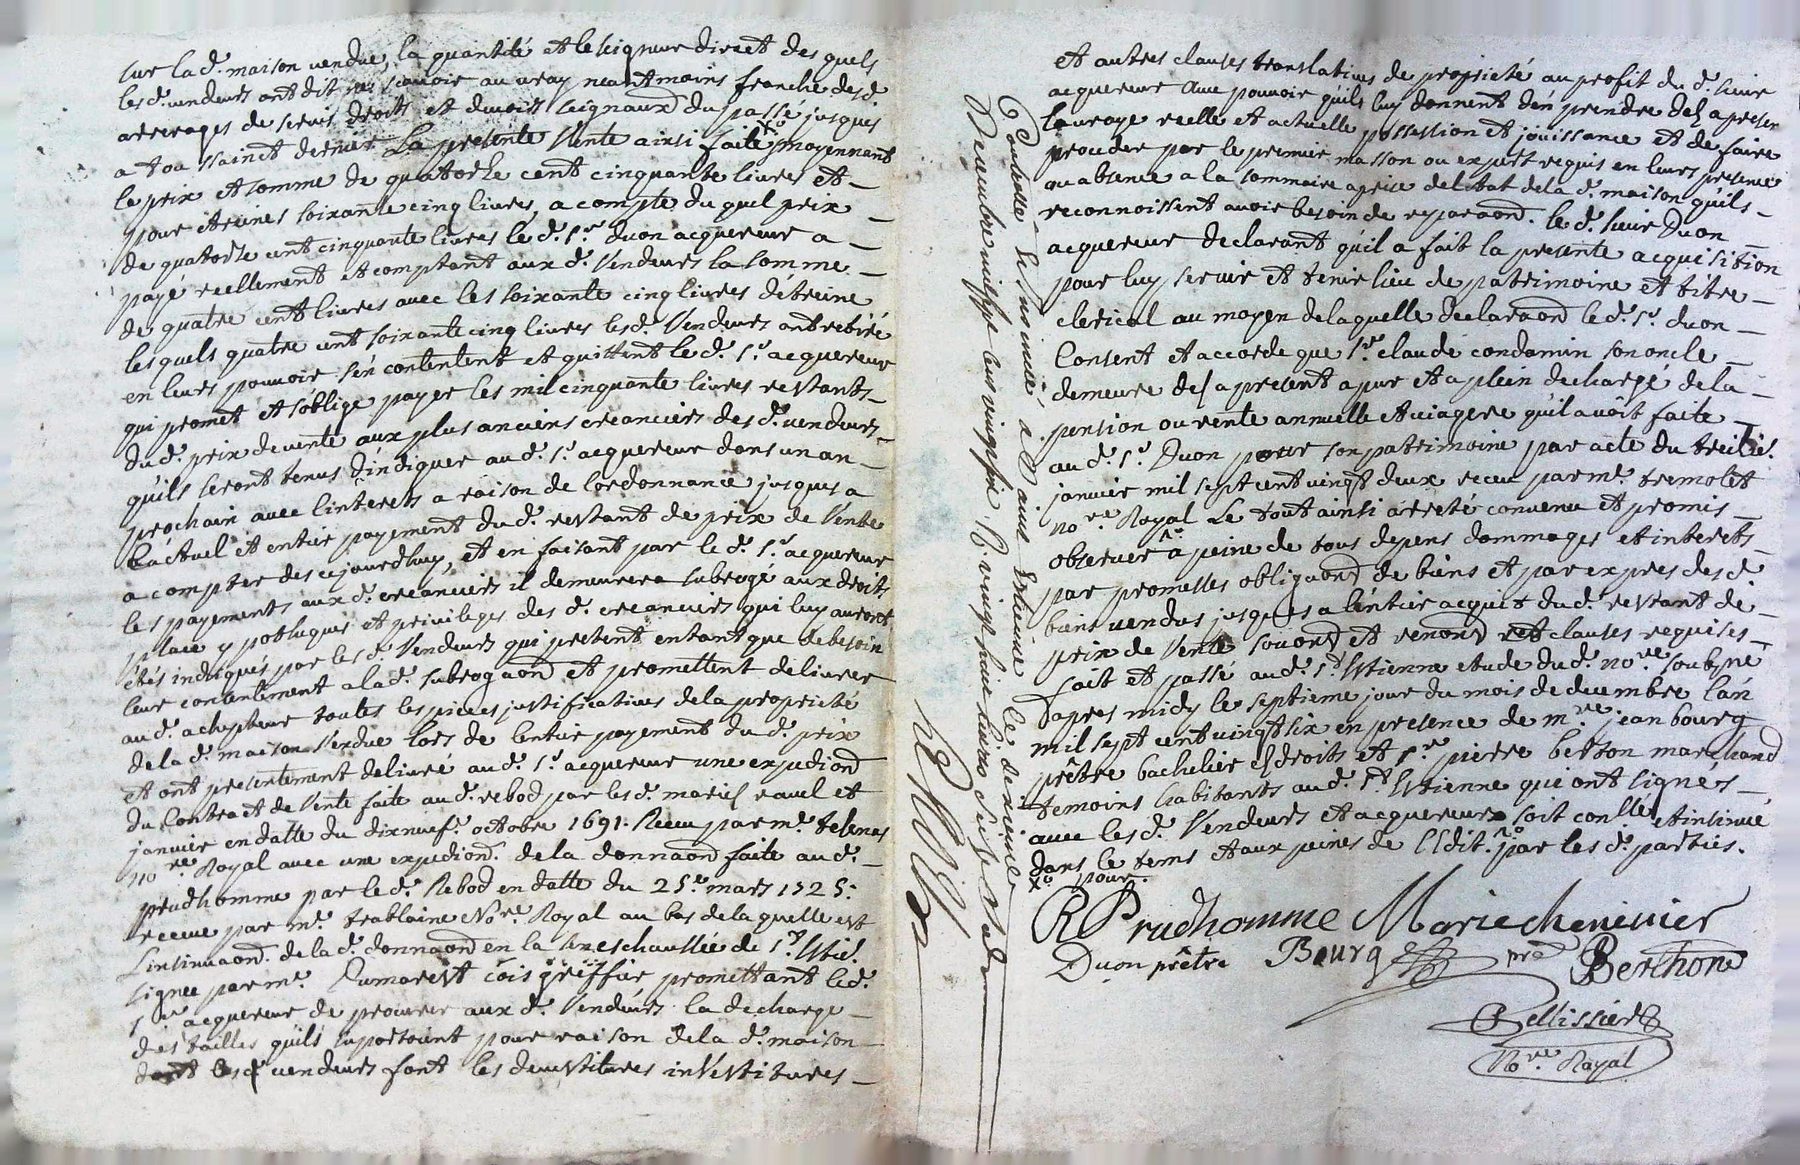 sur lad. maison vendue, la quantité et le seigneur direct des quels
les d. vendeurs ont dit ne scavoir au vray neantmoins franche desd.
arrerages de servis droits et devoirs seignaux du passé jusques
a toussainct dernier La presente vente ainsi faite moyennant
le prix et somme de quatorze cent cinquante livres et
pour etreines soixante cinq livres, a compte du quel prix
de quatorze cent cinquante livres le d. Sr. duon acquereur a
payé reellement et comptant aux d. vendeurs la somme
de quatre cent livres avec les soixante cinq livres détreine
lesquels quatre cent soixante cinq livres lesd. vendeurs ont retiré
en leurs pouvoir s'én contentent et quittent le d. Sr. acquereur
qui promet et soblige payer les mil cinquante livres restants
du d. prix de vente aux plus anciens creanciers des d. vendeurs
quils seront tenus d'indiquer au d. Sr. acquereur dans un an
prochain avec l'interets a raison de l'ordonnance jusques a
l'áctuel et entier payement du d. restant de prix de vente
a compter des cejourdhuy, et en faisant par le d. Sr. acquereur
les payements aux d. creanciers il demeurera subrogé aux droits
place ypotheques et privileges des d. creanciers qui luy auront
étés indiqués par les d. vendeurs qui pretent en tant que de besoin
leur contentement a la d. subrogaon et promettent delivrer
au d. achepteur toutes les pieces justificatives de la proprieté
de la d. maison vendue lors de lentier payement du d. prix
et ont presentement delivré au d. Sr. acquereur une expedion
du Contract de vente faite au d. rebod par les d. mariés ravel et
janvier en datte du dixneuf. octobre 1691. Receu par me.
no.re Royal avec une expedion. de la donnaon faite au d.
prudhomme par le d. Rebod en datte du 25e. mars 1725.
receue par me. trablaine No.re Royal au bas de la quelle est
L'insinuaon. de la d. donnaon en la senechaussée de St. Etie.
signée par me. Dumarest cois greffier promettant le d.
Sr. acquereur de procurer aux d. vendeurs la decharge
des tailles quils suportoient pour raison de la d. maison
dont les d. vendeurs font les devestitures investitures
et autres clauses translatives de proprieté au profit du d. sieur
acquereur avec pouvoir quils luy donnent d'én prendre des a present
la vraye reelle et actuelle possession et jouissance et de faire
proceder par le premier masson ou expert requis en leurs presence
ou absence a la sommaire aprise de l'etat de la d. maison quils
reconnoissent avoir besoin de reparaon. le d. sieur Duon
acquereur declarant qu'il a fait la presente acquisition
pour luy servir et tenir lieu de patrimoine et titre
clerical au moyen de laquelle declaraon le d. Sr. duon
Consent et accorde que Sr. claude condamin son oncle
demeure des a present a pur et a plein dechargé de la
pension ou rente annuelle et viagere qu'il avoit faite
au d. Sr. Duon pour son patrimoine par acte du
janvier mil sept cent vingt deux receu par me. tremolet
no.re Royal Le tout ainsi arreté convenu et promis
observer a peine de tous depens dommages et interets
par promesses obligaons de biens et par expres des d.
biens vendus jusques a l'éntier acquit du d. restant de
prix de vente soumons et renons et clauses requises
fait et passé au d. St. Etienne etude du d. no.re soubsné
apres midy le septieme jour du mois de decembre l'an
mil sept cent vingt six en presence de m.re jean bourg
prêtre bachelier es droits et Sr. pierre berton marchand
temoins habitants au d. St. Etienne que ont signés
avec les d. vendeurs et acquereur soit conllé et insinué
dans le tems et aux peines de l'Edit. par les d. parties.
xo pour.
R Prudhomme Marie chenevier
Duon prêtre Bourg pre Berthon
Pellissier
No.re Royal
Controllé et insinué a Saint Etienne le
Decembre mil sept cent vingt six R. vingt huit livres